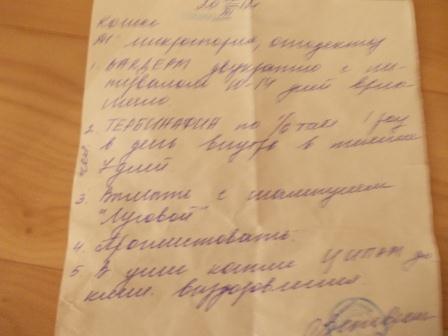 Кошке
Ds: микроспория, отодектоз
1. двукратно с ин-
тервалом 10-14 дней
2. ТЕРБИНАФИН по табл 1 раз
в день внутрь в течение
7 дней
3. с шампунем
"Луговой"
4. Проглистовать.
5. В уши капли ЦИПАМ до
клин. выздоровления